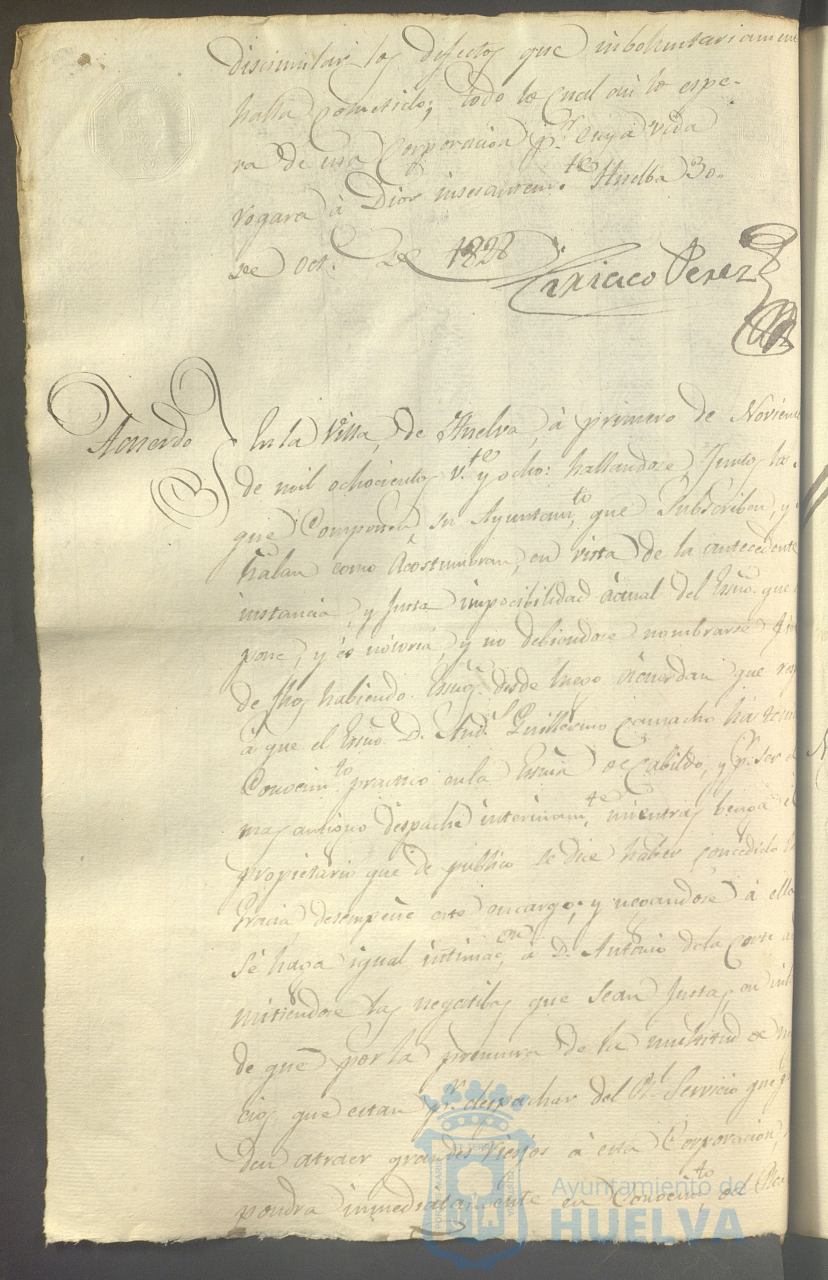 disimular los defectos que inboluntariamen
halla cometido; todo lo cual asi lo espe-
ra de esa Corporacion p.r cuya vida
rogara à Dios insesantem.te Huelba 30.
de Oct. de 1828
Ciriaco Perez
Acuerdo
En la Villa de Huelva, à primero de Noviem
de mil ochocientos v.te y ocho: hallandose Juntos los
que Componen su Ayuntam.to que Subscriben, y
halan como Acostumbran, en vista de la antecedente
instancia, y Justa imposibilidad àctual del Essno. que
pone, y es notoria, y no debiendose nombrarse
de fhos habiendo Essnos. desde luego àcuerdan que
à que el Essno. D. And.s Guillermo Camacho ha
Conocim.to practico en la Essnia de Cabildo, y p.r ser
mas antiguo despache interinam.te mientras benga
propietario que de publico se dice haber concedido
Gracia, desempeñe este encargo; y negandose à ello
Se haga igual intimac.on à D. Antonio de la Corte
mitiendose las negatibas que sean Justas, en
de que por la premura de la multitud de
cios que estan p.r despachar del R.l Servicio que
den atraer grandes riesgos à esta Corporacion,
pondra inmediatamente en Conocim.to del
Ayuntamiento de
HUELVA